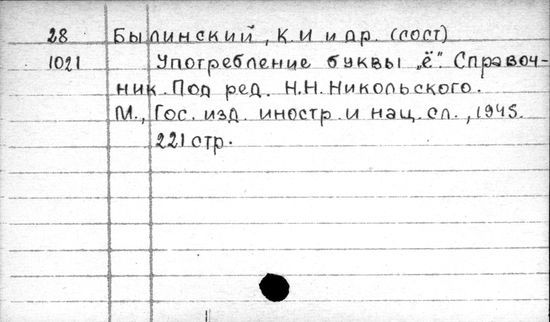 28 Былинский, К.И и др. (сост)
1021 Употребление буквы „ё". Справоч-
ник. Под ред. Н.Н. Никольского.
М., Гос. изд. иностр. и нац. сл., 1945.
221 стр.